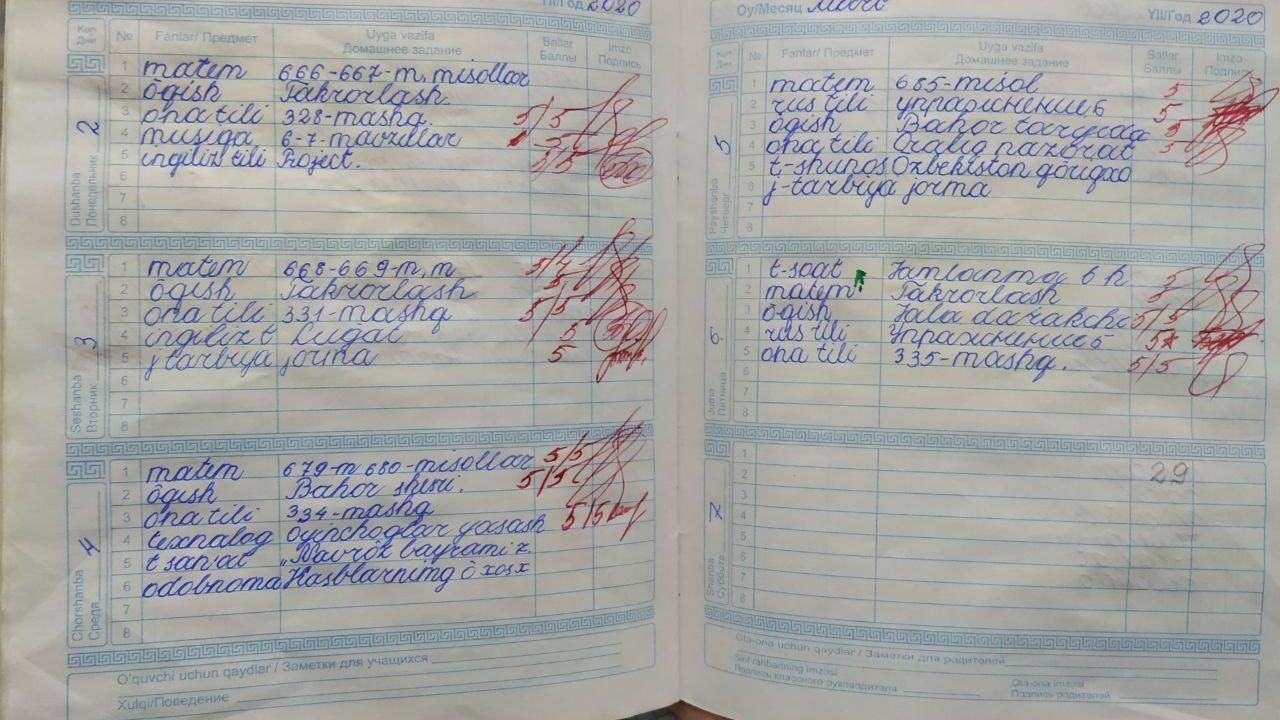 Yil/Год 2020
Кун Дни № Fanlar/ Предмет Uyga vazifa Домашнее задание Ballar Баллы Imzo Подпись
Dushanba Понедельник 2
1 matem 666-667-m. misollar
2 ōgish Takrorlash.
3 ona tili 328-mashq. 5/5
4 musiqa 6-7-mavzular
5 ingiliz tili Project. 5/5
6
7
8
Seshanba Вторник 3
1 matem 668-669-m, m
2 ōgish Takrorlash
3 ona tili 331-mashq 5/5
4 ingiliz t Lugat 5
5 j tarbiya jorma 5
6
7
8
Chorshanba Среда 4
1 matem 679-m 680-misollar 5/5
2 ōgish Bahor sheri. 5/5
3 ona tili 334-mashq
4 texnalog ōyinchoglar yasash 5/5
5 t sanat „Navrōz bayrami z.
6 odobnoma Hasblarning ō xosx
7
8
O'quvchi uchun qaydlar / Заметки для учащихся
Xulqi/Поведение
Oy/Месяц Mart Yil/Год 2020
Кун Дни № Fanlar/ Предмет Uyga vazifa Домашнее задание Ballar Баллы Imzo Подпись
Payshanba Четверг 5
1 matem 685-misol 5
2 rus tili упражнение 6 5
3 ōgish Bahor 5
4 ona tili Oralig nazorat 5
5 t-shunos Ōzbekiston
6 j-tarbiya jorma
7
8
Juma Пятница 6
1 t-soat Jamlanma 6 h 5
2 matem Takrorlash 5
3 ōgish Jala darakchi 5/5
4 rus tili Упражнение 5
5 ona tili 335-mashq. 5/5
6
7
8
Shanba Суббота 7
1
2 29
3
4
5
6
7
8
Ota-ona uchun qaydlar / Заметки для родителей
Sinf rahbarining imzosi Подпись классного руководителя
Ota-ona imzosi Подпись родителей